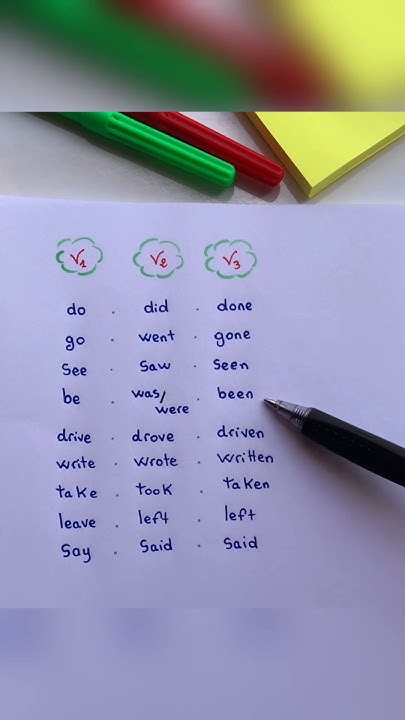 V1 V2 V3
do . did . done
go . went . gone
see . saw . seen
be . was/were . been
drive . drove . driven
write . wrote . written
take . took . taken
leave . left . left
say . said . said